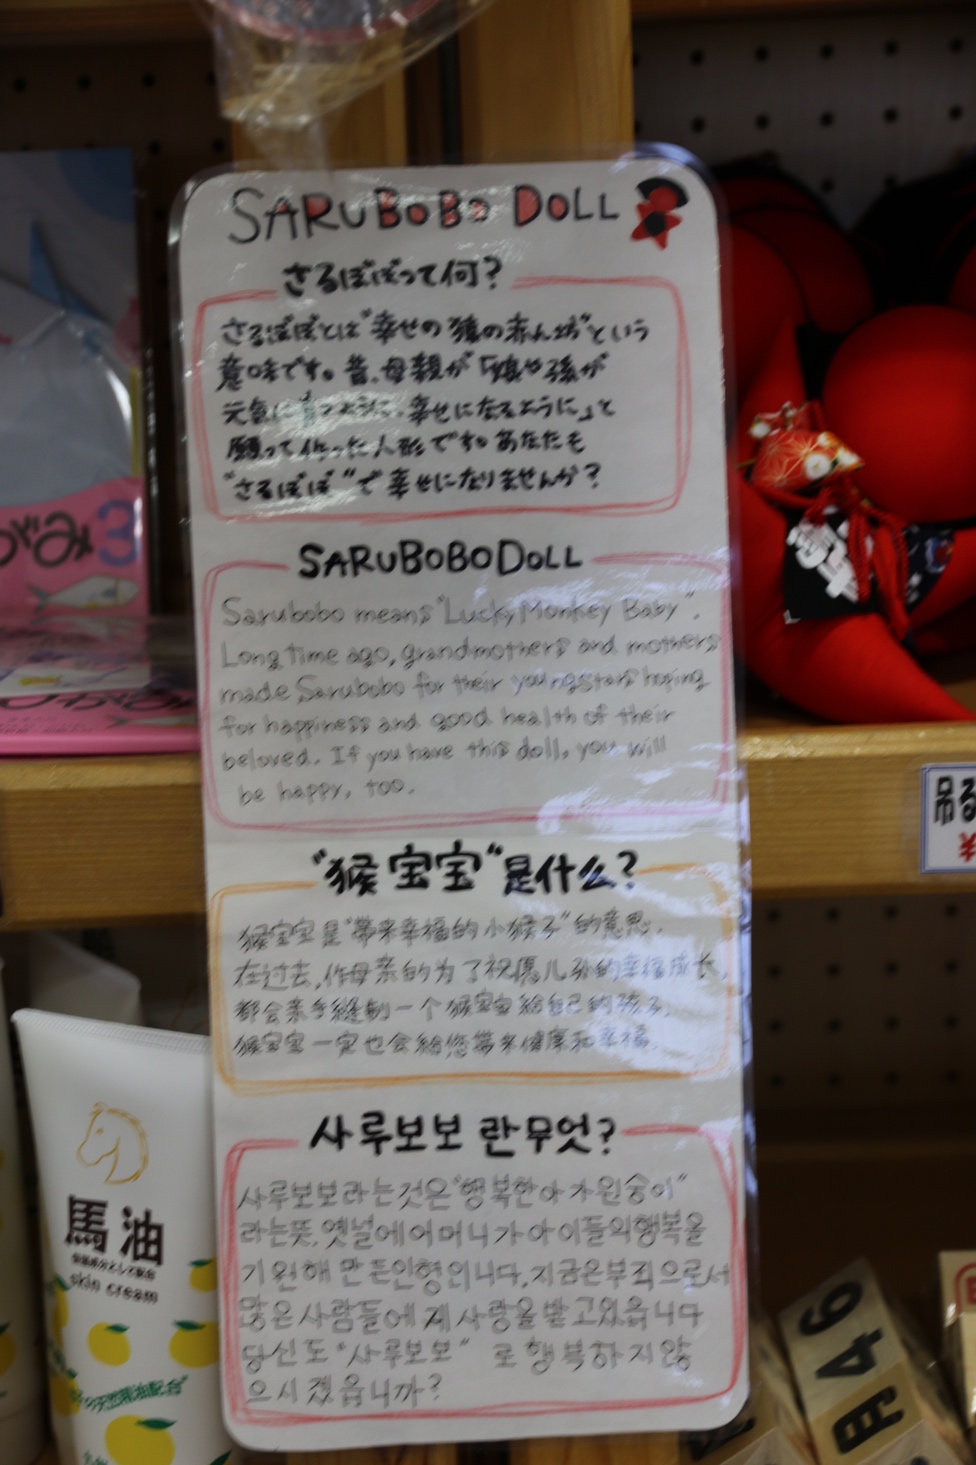 SARUBOBO DOLL
さるぼぼって何?
さるぼぼとは"幸せの猿の赤ん坊"という
意味です。昔、母親が「娘や孫が
元気に育つように、幸せになるように」と
願って作った人形です。あなたも
"さるぼぼ"で幸せになりませんか?
SARUBOBO DOLL
Sarubobo means "Lucky Monkey Baby".
Long time ago, grandmothers and mothers
made Sarubobo for their youngstars hoping
for happiness and good health of their
beloved. If you have this doll, you will
be happy, too.
"猴宝宝"是什么?
猴宝宝是"帶来幸福的小猴子"的意思.
在过去,作母亲的为了祝愿儿孙的幸福成长,
都会亲手縫制一个猴宝宝給自己的孩子,
猴宝宝一定也会給您帶来健康和幸福.
사루보보란무엇?
사루보보라는것은"행복한아가원숭이"
라는뜻.옛널에어머니가아이들의행복을
기원해만든인형입니다.지금은부적으로서
많은사람들에게사랑을받고있읍니다
당신도"사루보보"로행복하지않
으시겠읍니까?
馬油
skin cream
天然精油配合
3
吊る
¥
46
月